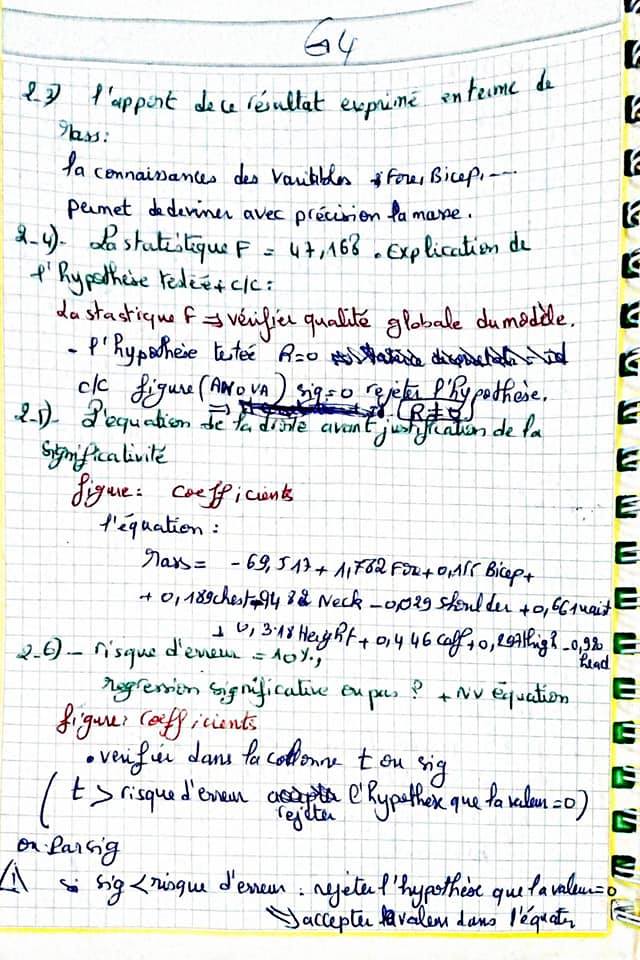 G4
2-3) l'apport de ce résultat exprimé en terme de
Mass:
la connaissances des variables Fore, Bicep, ---
permet de deviner avec précision la masse.
2-4)- La statistique F = 47,168. Explication de
l'hypothèse testée + c/c :
La stastique F => vérifier qualité globale du modèle.
- l'hypothèse testée R=0
c/c figure (ANOVA) sig=0 rejeter l'hypothèse.
=> (R≠0)
2-5)- l'equation de la droite avant justification de la
significativité
figure: coefficients
l'équation :
Mass = -69,517 + 1,782 For + 0,155 Bicep +
+ 0,189 chest - Neck - 0,029 shoulder + 0,661 waist
+ 0,318 Height + 0,446 calf + 0,297 thigh - 0,920
head
2-6)- risque d'erreur = 10%,
regression significative ou pas ? + NV équation
figure: coefficients
• verifier dans la collonne t ou sig
( t > risque d'erreur rejeter l'hypothèse que la valeur = 0)
ou par sig
⚠ si sig < risque d'erreur : rejeter l'hypothèse que la valeur = 0
=> accepter la valeur dans l'équat